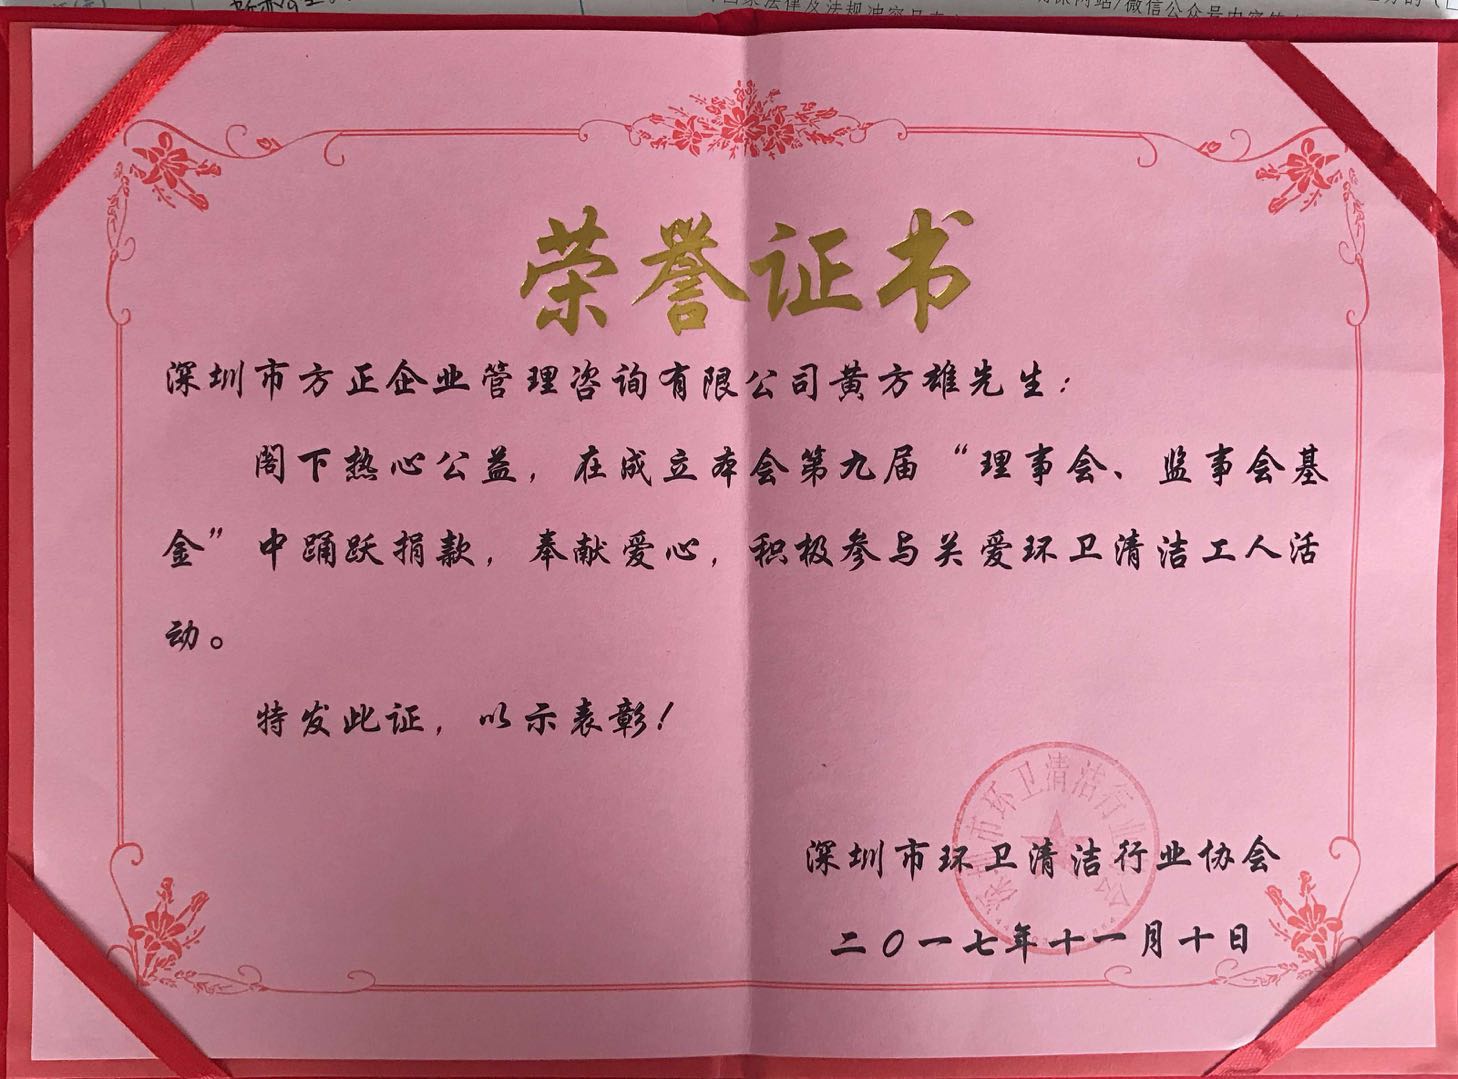 国家法律及法规冲突
网站/微信公众号内容
荣誉证书
深圳市方正企业管理咨询有限公司黄方雄先生：
阁下热心公益，在成立本会第九届“理事会、监事会基
金”中踊跃捐款，奉献爱心，积极参与关爱环卫清洁工人活
动。
特发此证，以示表彰！
深圳市环卫清洁行业协会
深圳市环卫清洁行业协会
二〇一七年十一月十日